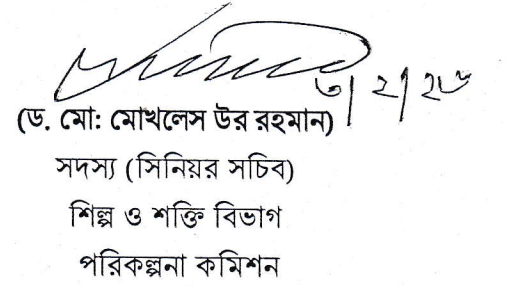 ৩/২/২৬
(ড. মো: মোখলেস উর রহমান)
সদস্য (সিনিয়র সচিব)
শিল্প ও শক্তি বিভাগ
পরিকল্পনা কমিশন